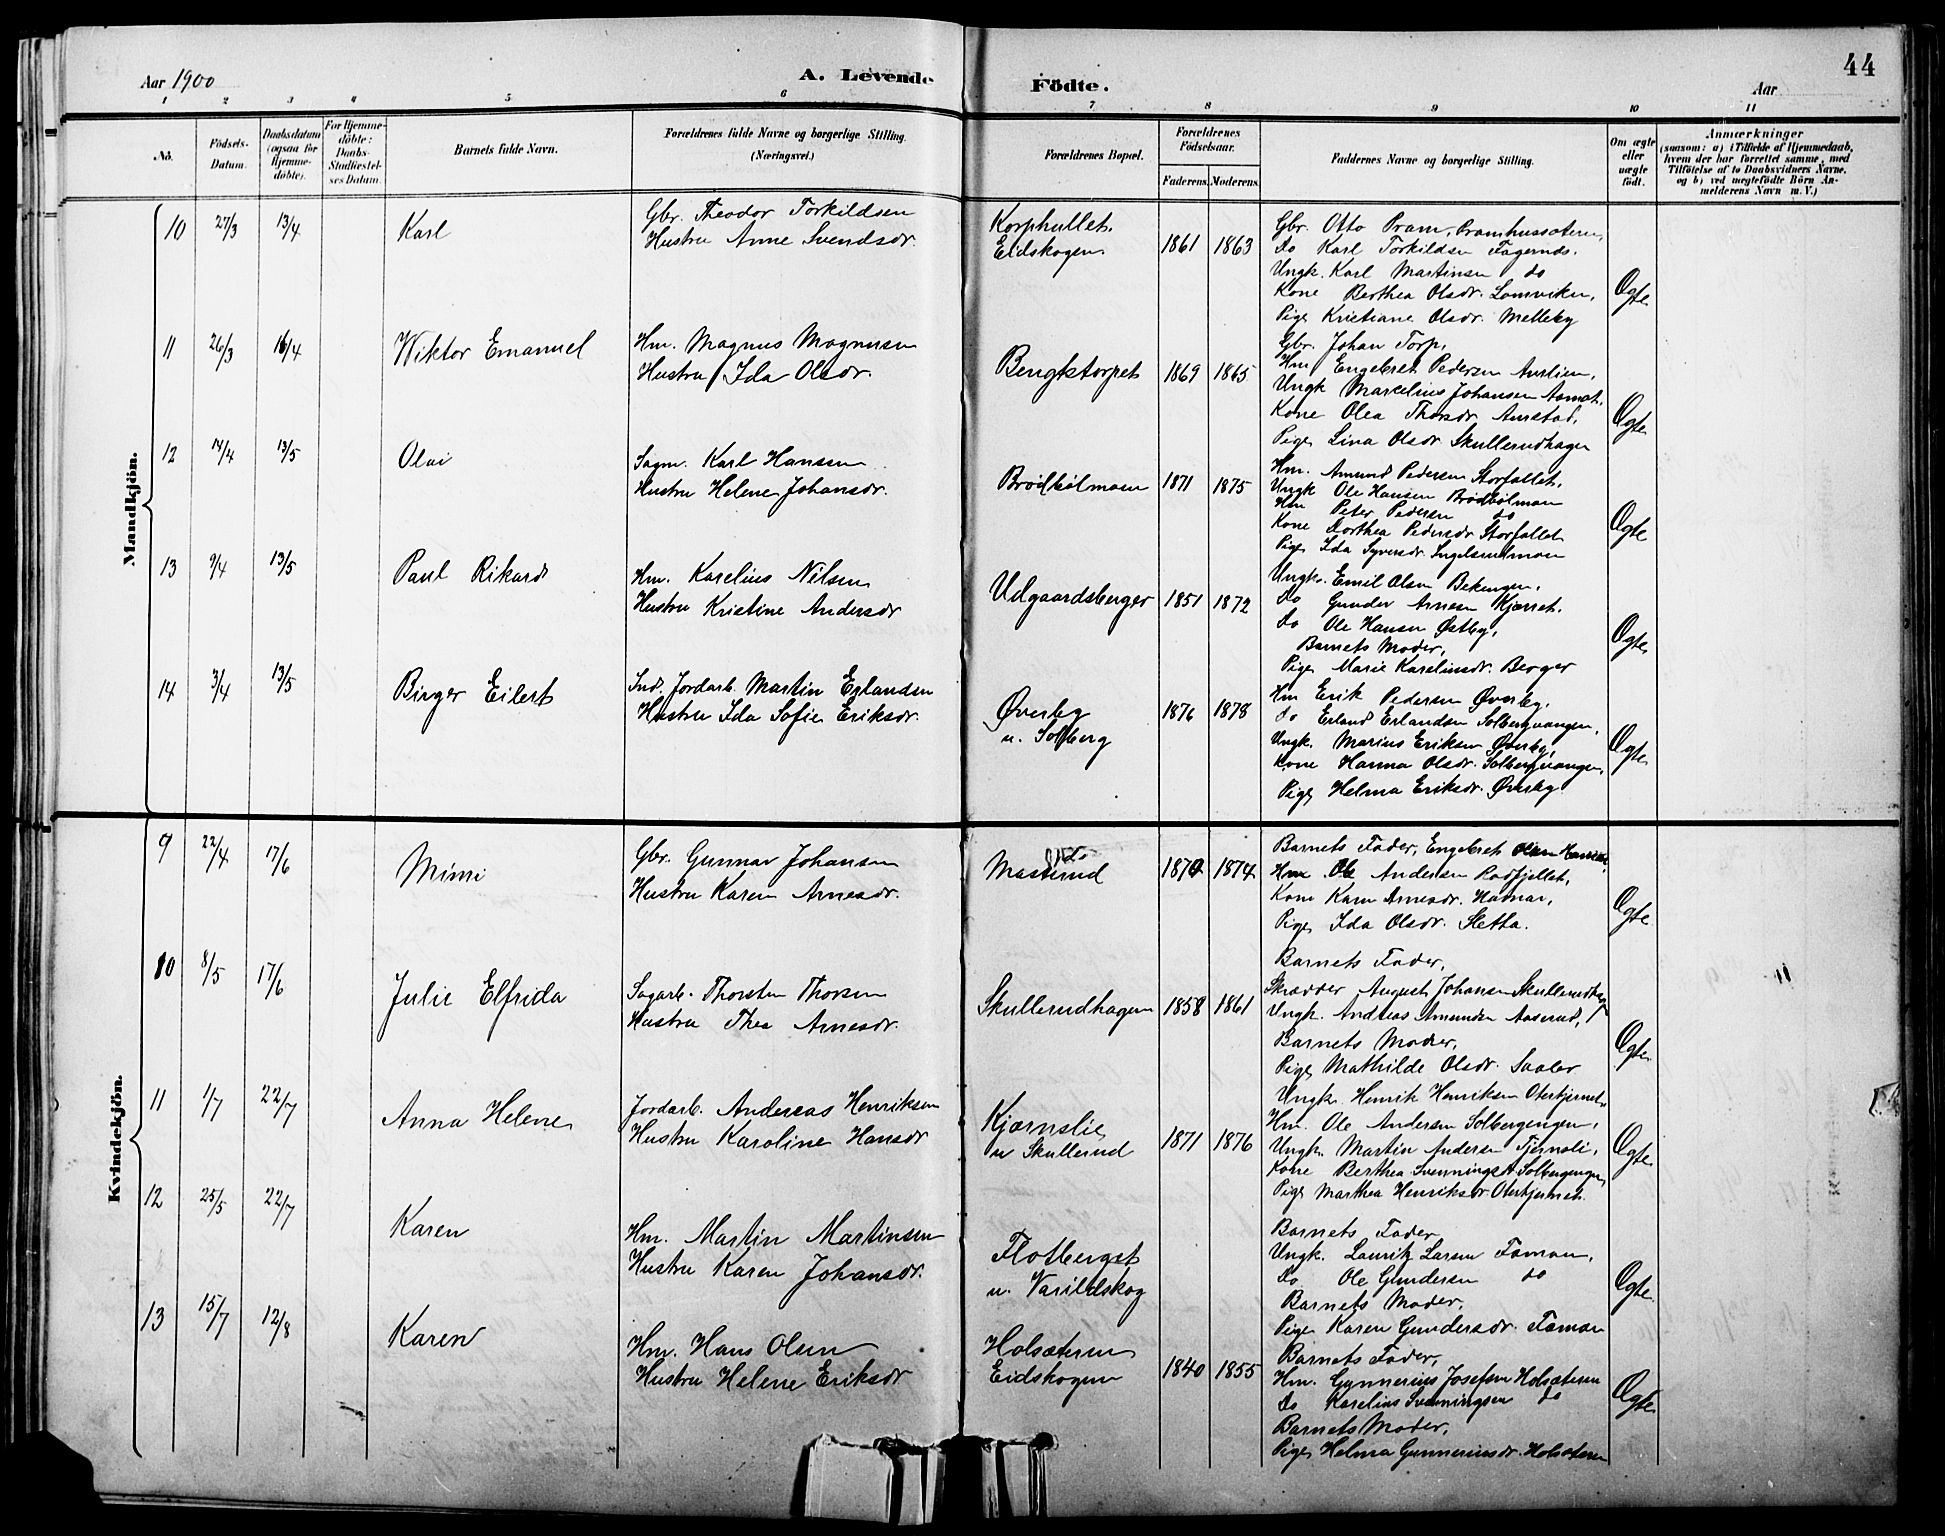 44
Aar 1900
A. Levende Födte.
Aar
1 2 3 4 5 6 7 8 9 10 11
No.
Födsels-Datum.
Daabsdatum (ogsaa for Hjemme-døbte).
For Hjemme-döbte: Daabs-Stadfæstel-ses Datum.
Barnets fulde Navn.
Forældrenes fulde Navne og borgerlige Stilling. (Næringsvei.)
Forældrenes Bopæl.
Forældrenes Födselsaar.
Faderens. Moderens.
Faddernes Navne og borgerlige Stilling.
Om ægte eller uægte födt.
Anmærkninger
(saasom: a) i Tilfælde af Hjemmedaab, hvem der har forrettet samme, med Tilföielse af to Daabsvidners Navne, og b) ved uægtefödte Börn An-melderens Navn m. V.)
Mandkjön.
10 27/3 13/4 Karl
Gbr. Theodor Torkildsen
Hustru Anne Svendsdr.
Korphullet.
Eidskogen.
1861 1863
Gbr. Otto Pram, Pramhussæteren,
Do Karl Torkildsen Fagernæs.
Ungk. Karl Martinsen do
Kone Berthea Olsdr. Lomviken,
Pige Kristiane Olsdr. Melleby
Ægte
11 26/3 16/4 Wiktor Emanuel
Hm. Magnus Magnusen
Hustru Ida Olsdr.
Bengktorpet 1869 1865
Gbr. Johan Torp,
Hm Engebret Pedersen Aurlien,
Ungk Marcelius Johansen Aamot,
Kone Olea Thorsdr. Aurstad,
Pige Lina Olsdr Skullerudhagen
Ægte
12 14/4 13/5 Olai
Sagm. Karl Hansen
Hustru Helene Johansdr.
Brødbølmoen 1871 1875
Hm. Amund Pedersen Storfallet,
Ungk Ole Hansen Brødbølmoen
Hm Peter Pedersen do
Kone Dorthea Pedersdr Storfallet
Pige Ida Syversdr Ingelsrudmoen
Ægte
13 9/4 13/5 Paul Rikard
Hm. Karelius Nilsen
Hustru Kristine Andersdr
Udgaardsberger 1851 1872
Ungk. Emil Olsen Bekengen,
Do Gunder Arnesen Kjærret.
Do Ole Hansen Østby,
Barnets Moder,
Pige Marie Kareliusdr. Berger
Ægte
14 3/4 13/5 Birger Eilert
Ind. Jordarb. Martin Erlandsen
Hustru Ida Sofie Eriksdr.
Øverby
u. Solberg
1876 1878
Hm Erik Pedersen Øverby,
do Erland Erlandsen Solbergvangen,
Ungk. Marius Eriksen Øverby,
Kone Hanna Olsdr. Solbergvangen,
Pige Helma Eriksdr. Øverby
Ægte
Kvindekjön.
9 22/4 17/6 Mimi
Gbr. Gunnar Johansen
Hustru Karen Arnesdr.
Masterud 1874
Barnets Fader, Engebret Olsen
Hm Ole Andersen Rødfjellet,
Kone Karen Arnesdr. Hamar,
Pige Ida Olsdr. Sletta.
Ægte
10 8/5 17/6 Julie Elfrida
Sagarb. Thorsten Thorsen
Hustru Thea Arnesdr.
Skullerudhagen 1858 1861
Barnets Fader,
Skræder August Johansen Skullerudhag
Ungk. Andreas Amundsen Aaserud,
Barnets Moder,
Pige Mathilde Olsdr. Saaler
Ægte
11 1/7 22/7 Anna Helene
Jordarb. Andreas Henriksen
Hustru Karoline Hansdr
Kjærnslie
u Skullerud
1871 1876
Ungk. Henrik Henriksen Otertjernet,
Hm. Ole Andersen Solbergengen,
Ungk. Martin Andersen Tjernsli,
Kone Berthea Svenningsd Solbergengen,
Pige Marthea Henriksdr Otertjernet
Ægte
12 25/5 22/7 Karen
Hm. Martin Martinsen
Hustru Karen Johansdr.
Flotberget
u. Varildskog
Barnets Fader
Ungk. Lauritz Larsen Toman,
Do Ole Gundersen do
Barnets Moder,
Pige Karen Gundersdr. Toman
Ægte
13 15/7 12/8 Karen
Hm. Hans Olsen
Hustru Helene Eriksdr
Holsæteren
Eidskogen
1840 1855
Barnets Fader,
Hm. Gunnerius Josefsen Holsæteren
Do Karelius Svenningsen do
Barnets Moder,
Pige Helma Gunneriusdr. Holsæteren
Ægte